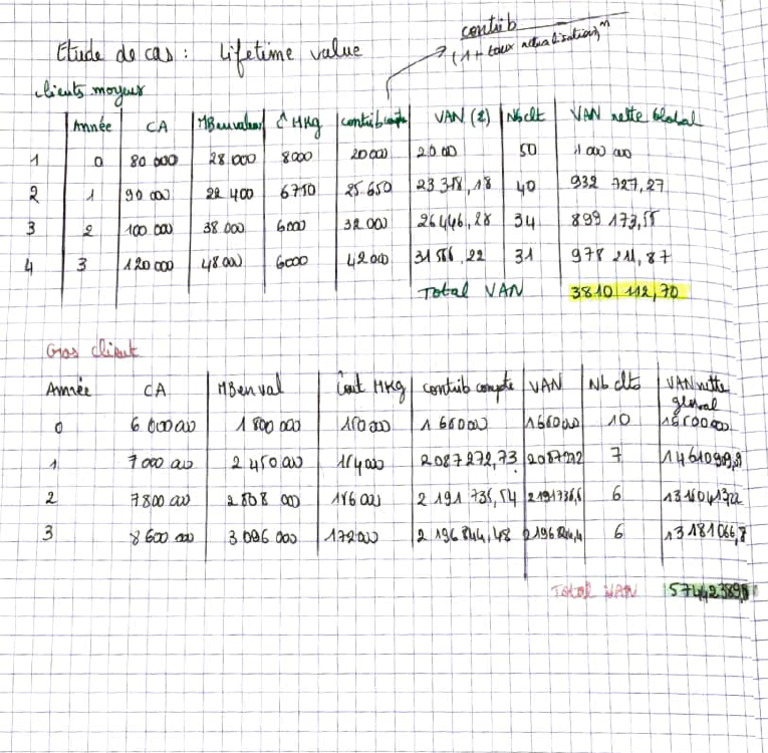 contrib
(1 + taux actualisation)^n
Etude de cas : Lifetime value
clients moyens
Année CA MB en valeur C MKg contrib compte VAN (€) Nb clt VAN nette Global
1 0 80 000 28.000 8000 20000 20.000 50 1 000 000
2 1 90 000 22 400 6750 25.650 23 318,18 40 932 727,27
3 2 100 000 38 000 6000 32 000 26446,28 34 899 173,55
4 3 120 000 48.000 6000 42000 31556,22 31 978 211,87
Total VAN 3810 112,70
Gros client
Année CA MB en val Cout MKg contrib compte VAN Nb clts VAN nette global
0 6 000 000 1 800 000 150 000 1 650 000 1650000 10 16500000
1 7 000 000 2 450 000 154000 2 087 272,73 2087272 7 14610909,9
2 7 800 000 2 808 000 156 000 2 191 735,54 2191735,5 6 13150413,22
3 8 600 000 3 096 000 172000 2 196 844,48 2196844,4 6 13 181 066,8
Total VAN 57442389,9